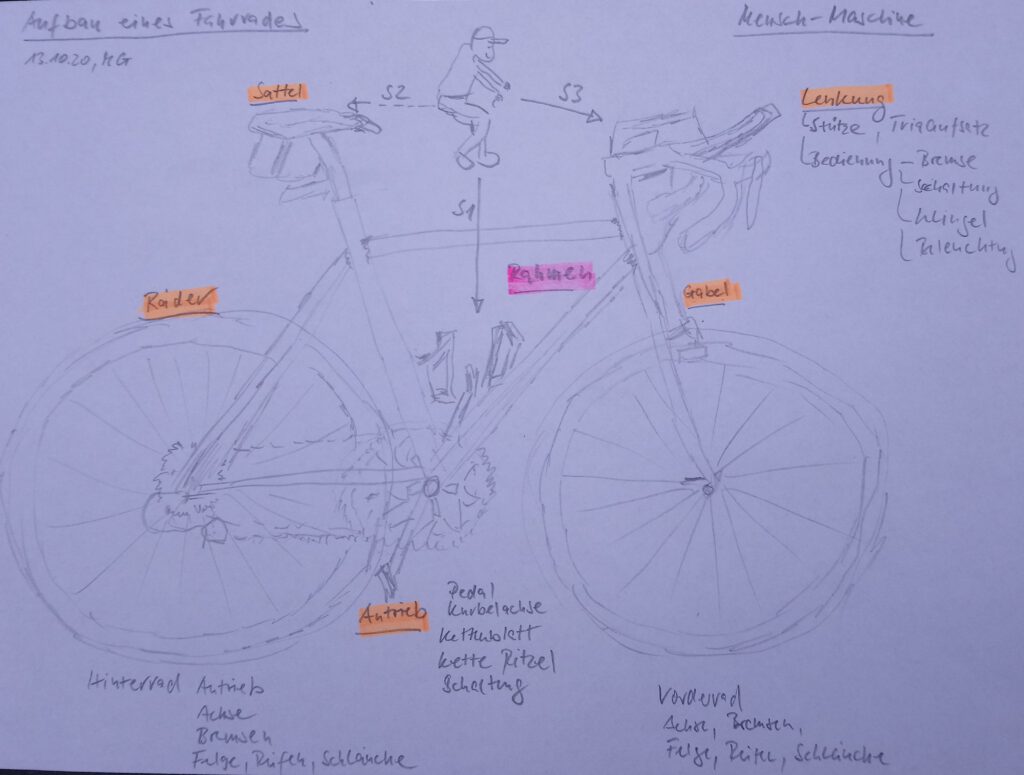 Aufbau eines Fahrrades
13.10.20, MG
Mensch-Maschine
Sattel
S2
S3
S1
Lenkung
Stütze, Triaaufsatz
Bedienung - Bremse
Schaltung
Klingel
Beleuchtung
Rahmen
Gabel
Räder
Antrieb
Pedal
Kurbelachse
Kettenblatt
Kette Ritzel
Schaltung
Hinterrad Antrieb
Achse
Bremsen
Felge, Reifen, Schläuche
Vorderrad
Achse, Bremsen,
Felge, Reifen, Schläuche